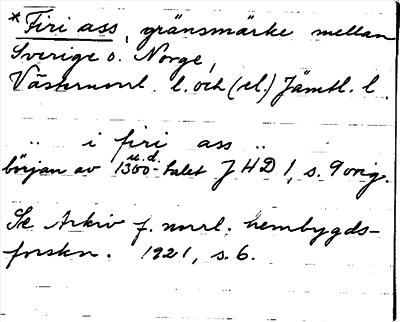 *Firi ass, gränsmärke mellan
Sverige o. Norge,
Västernorrl. l. och (el.) Jämtl. l.
.. i firi ass ..
u.d.
början av 1300-talet JHD 1, s. 9 orig.
Se Arkiv f. norrl. hembygds-
forskn. 1921, s. 6.